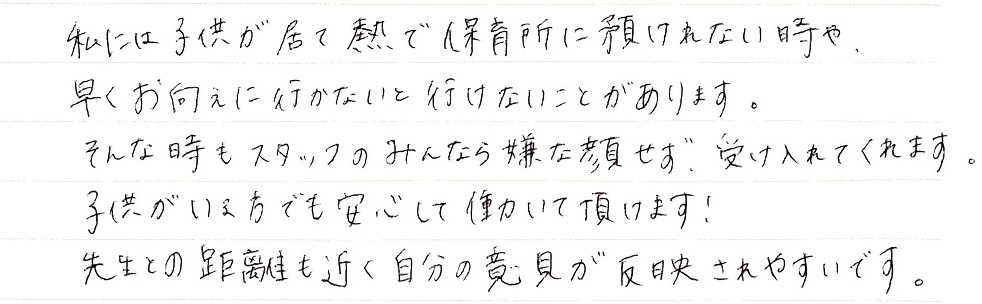 私には子供が居て熱で保育所に預けれない時や、
早くお向えに行かないと行けないことがあります。
そんな時もスタッフのみんなら嫌な顔せず、受け入れてくれます。
子供がいる方でも安心して働いて頂けます!
先生との距離も近く自分の意見が反映されやすいです。